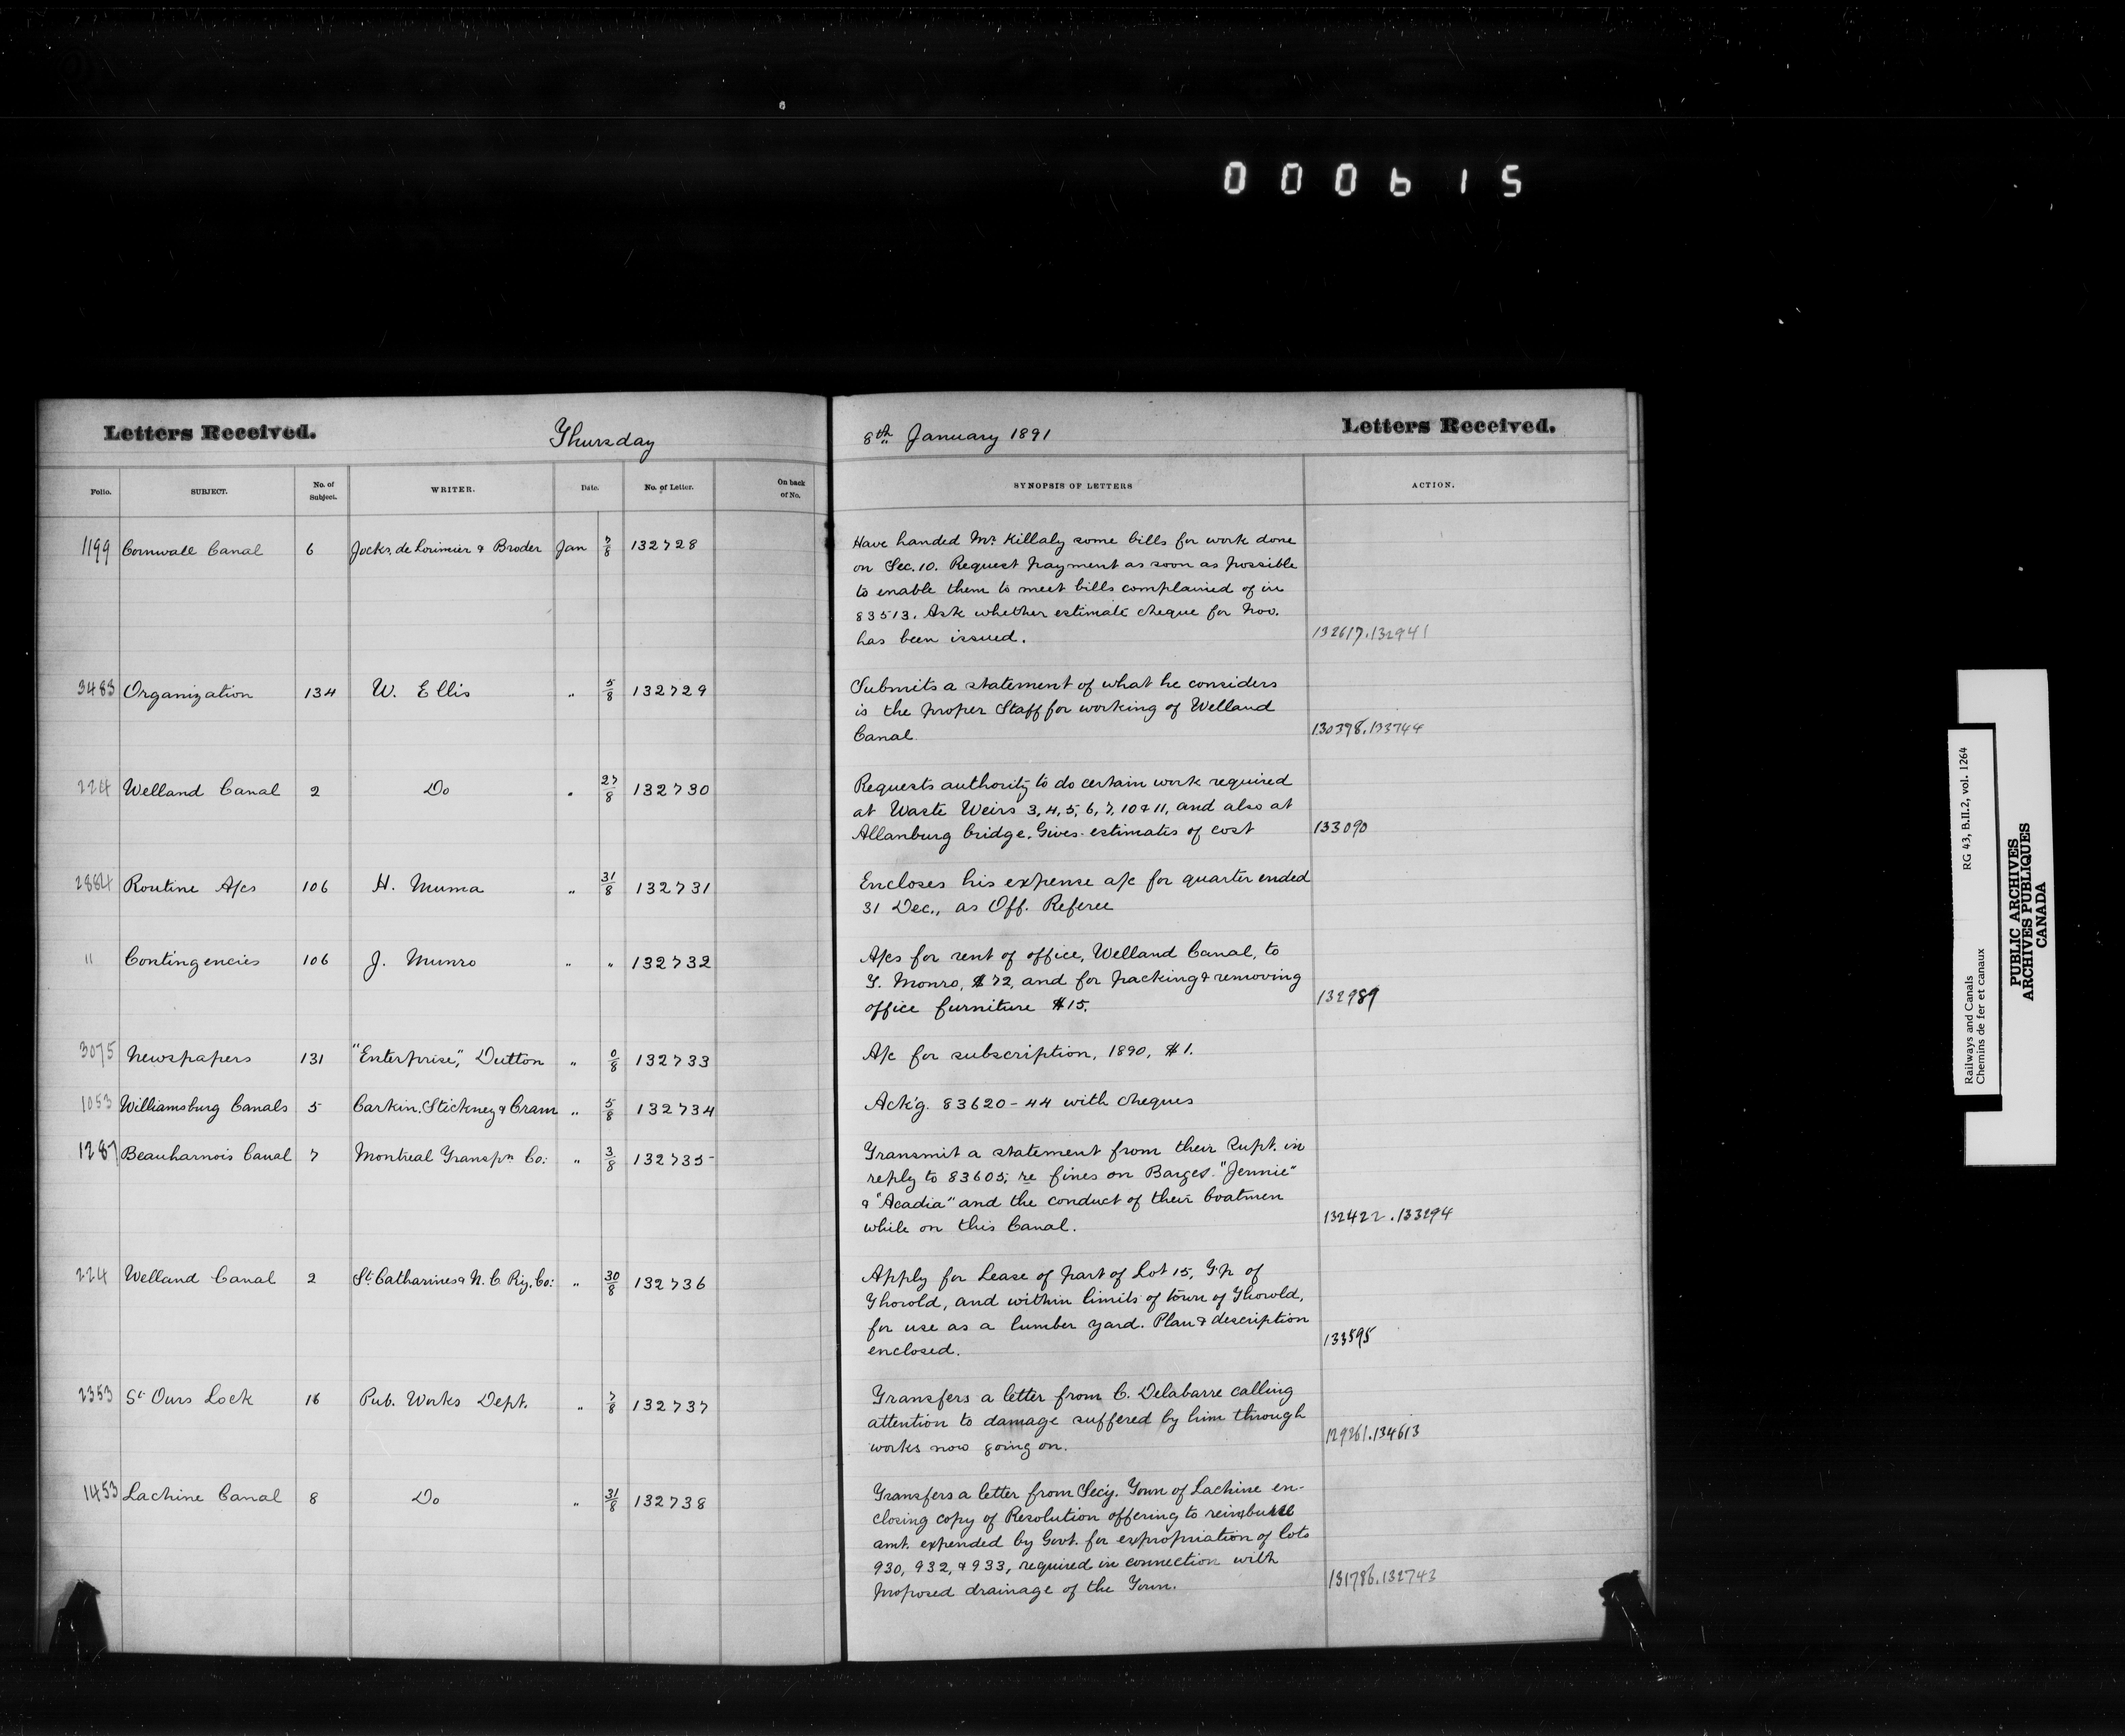 000615
Letters Received.
Thursday
8th January 1891
Letters Received.
Folio.
SUBJECT.
No. of Subject.
WRITER.
Date.
No. of Letter.
On back of No.
SYNOPSIS OF LETTERS
ACTION.
1199 Cornwall Canal 6 Jocks, de Lorimier & Broder Jan 7/8 132728
Have handed Mr. Killaly some bills for work done
on Sec. 10. Request payment as soon as possible
to enable them to meet bills complained of in
83513. Ask whether estimate cheque for Nov.
has been issued.
132617.132941
3483 Organization 134 W. Ellis " 5/8 132729
Submits a statement of what he considers
is the proper Staff for working of Welland
Canal.
130398.133744
224 Welland Canal 2 Do " 27/8 132730
Requests authority to do certain work required
at Waste Weirs 3, 4, 5, 6, 7, 10 & 11, and also at
Allanburg bridge. Gives estimates of cost
133090
2884 Routine A/cs 106 H. Muma " 31/8 132731
Encloses his expense a/c for quarter ended
31 Dec., as Off. Referee
" Contingencies 106 J. Munro " " 132732
A/cs for rent of office, Welland Canal, to
T. Monro, $72, and for packing & removing
office furniture $15.
132989
3075 Newspapers 131 "Enterprise", Dutton " 0/8 132733
A/c for subscription, 1890, $1.
1053 Williamsburg Canals 5 Carkin, Stickney & Cram " 5/8 132734
Ack'g. 83620-44 with cheques
1287 Beauharnois Canal 7 Montreal Transpn. Co: " 3/8 132735
Transmit a statement from their Supt. in
reply to 83605; re fines on Barges. "Jennie"
& "Acadia" and the conduct of their boatmen
while on this Canal.
132422.133294
224 Welland Canal 2 St. Catharines & N. C Ry. Co: " 30/8 132736
Apply for Lease of part of Lot 15, Tp. of
Thorold, and within limits of town of Thorold,
for use as a lumber yard. Plan & description
enclosed.
133595
2353 St. Ours Lock 16 Pub. Works Dept. " 7/8 132737
Transfers a letter from C. Delabarre calling
attention to damage suffered by him through
works now going on.
129261.134613
1453 Lachine Canal 8 Do " 31/8 132738
Transfers a letter from Secy. Town of Lachine en-
closing copy of Resolution offering to reimburse
amt. expended by Govt. for expropriation of lots
930, 932, & 933, required in connection with
proposed drainage of the Town.
131786.132743
Railways and Canals RG 43, B.II.2, vol. 1264
Chemins de fer et canaux
PUBLIC ARCHIVES
ARCHIVES PUBLIQUES
CANADA